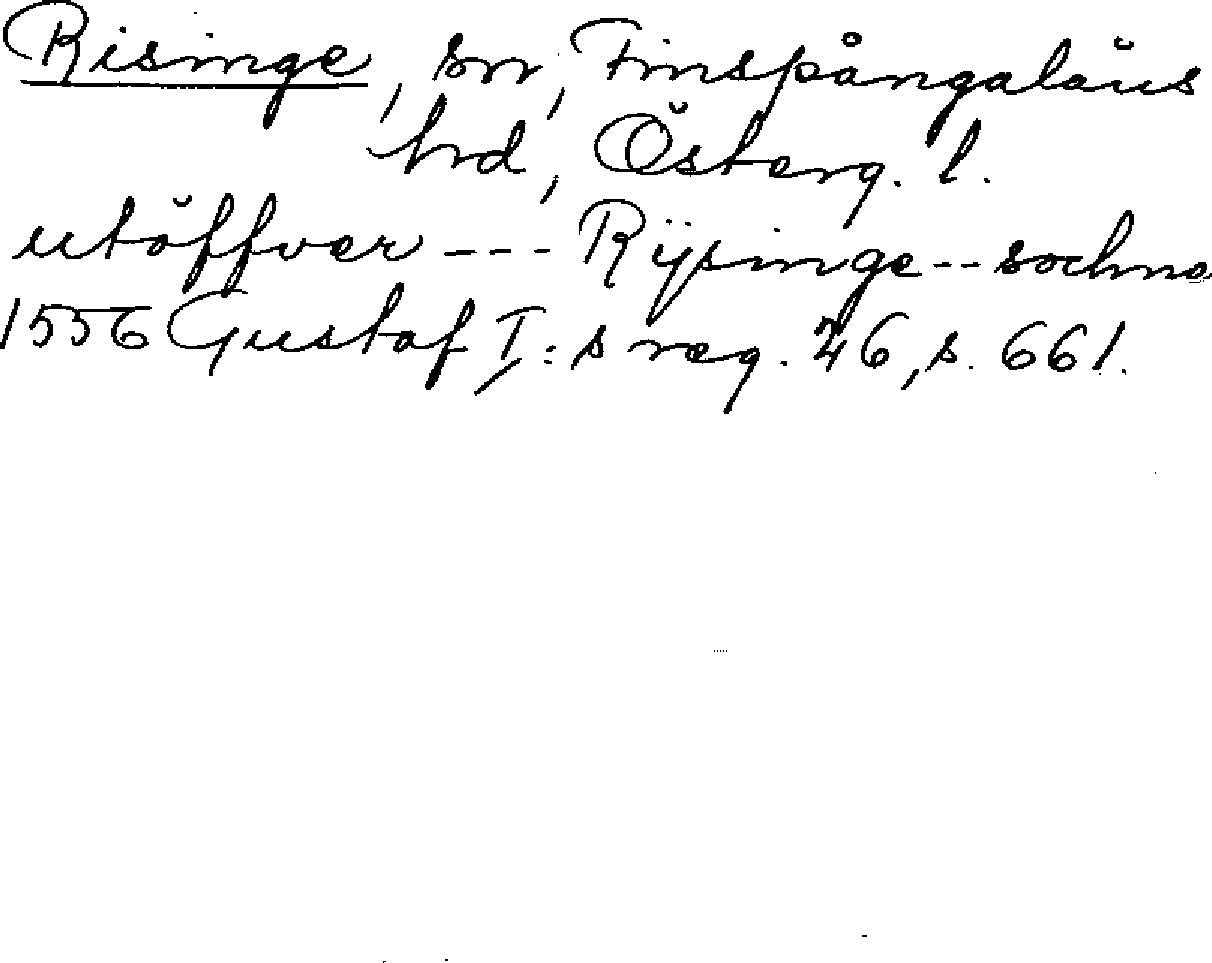 Risinge, sn, Finspångaläns
hrd, Österg. l.
utöffver --- Rijsinge -- sochna
1556 Gustaf I:s reg. 26, s. 661.